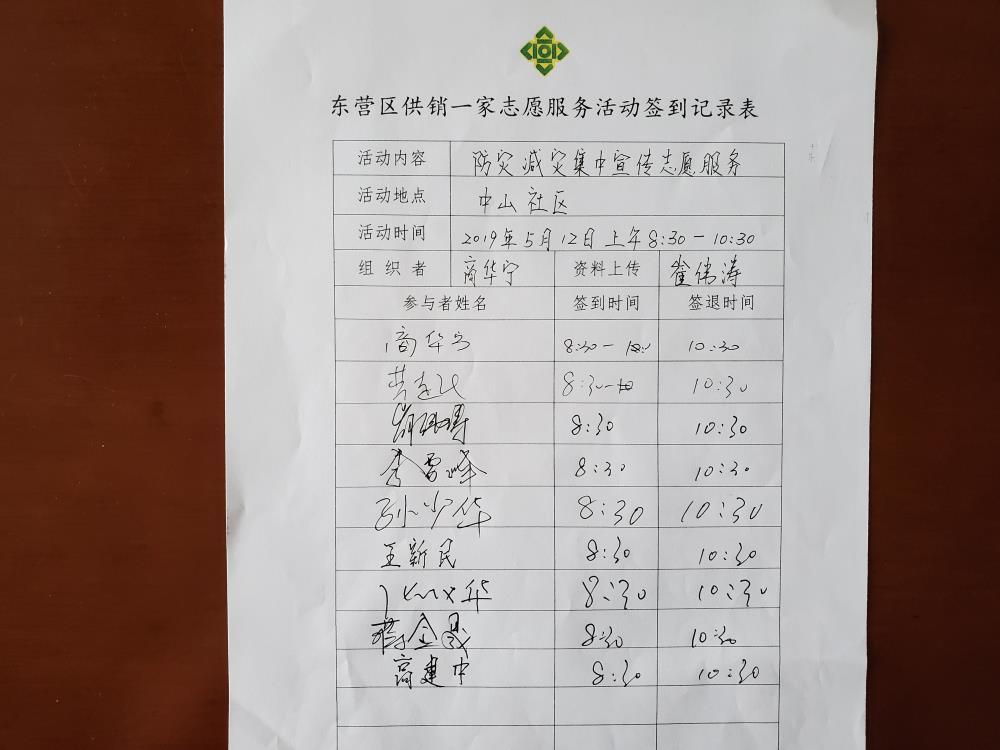 东营区供销一家志愿服务活动签到记录表
活动内容 防灾减灾集中宣传志愿服务
活动地点 中山社区
活动时间 2019年5月12日上午8:30-10:30
组织者 商华宁 资料上传 崔伟涛
参与者姓名 签到时间 签退时间
商华宁 8:30- 10:30
8:30-10 10:30
8:30 10:30
李雪峰 8:30 10:30
孙少华 8:30 10:30
王新民 8:30 10:30
华 8:30 10:30
蒋金晟 8:30 10:30
高建中 8:30 10:30